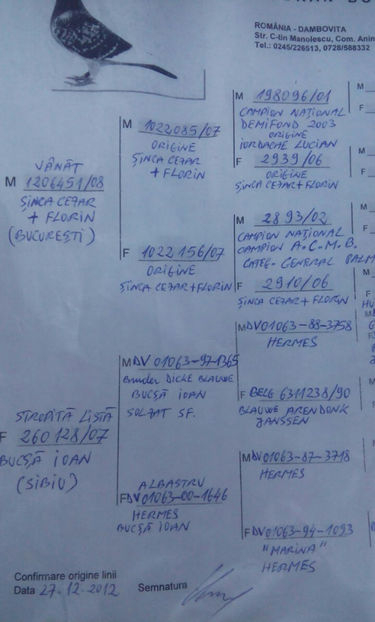 ROMÂNIA - DAMBOVITA
Str. C-tin Manolescu, Com. Anin
Tel.: 0245/226513, 0728/588332
VÂNĂT
M 1206451/08
ȘINCA CEZAR
+ FLORIN
(BUCUREȘTI)
M 1022085/07
ORIGINE
ȘINCA CEZAR
+ FLORIN
F 1022156/07
ORIGINE
ȘINCA CEZAR+FLORIN
M 198096/01
CAMPION NAȚIONAL
DEMIFOND 2003
ORIGINE
IORDACHE LUCIAN
F 2939/06
ORIGINE
ȘINCA CEZAR+FLORIN
M 2893/02
CAMPION NAȚIONAL
CAMPION A.C.M.B.
CATEG. GENERAL PALM
F 2910/06
ȘINCA CEZAR + FLORIN
STROPITĂ LISTĂ
F 260128/07
BUCȘĂ IOAN
(SIBIU)
M DV 01063-97-1365
Bruder DICKE BLAUWE
BUCȘĂ IOAN
SOLZAT SF.
ALBASTRU
F DV 01063-00-1646
HERMES
BUCȘĂ IOAN
M DV 01063-88-3758
HERMES
F BELG 6311238/90
BLAUWE ARENDONK
JANSSEN
M DV 01063-87-3718
HERMES
F DV 01063-94-1093
"MARINA"
HERMES
M
F
M
F
M
F
M
F
M
F
M
F
Confirmare origine linii
Data 27-12-2012 Semnatura